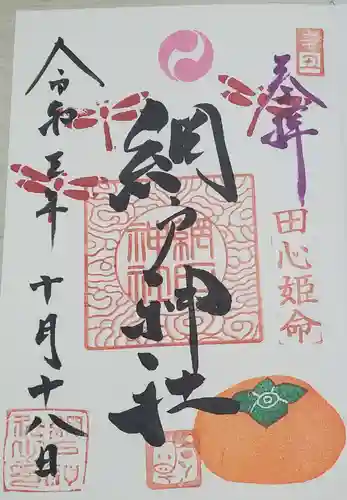 奉拝
田心姫命
網戸神社
令和三年
十月十八日
辛丑
網戸神社